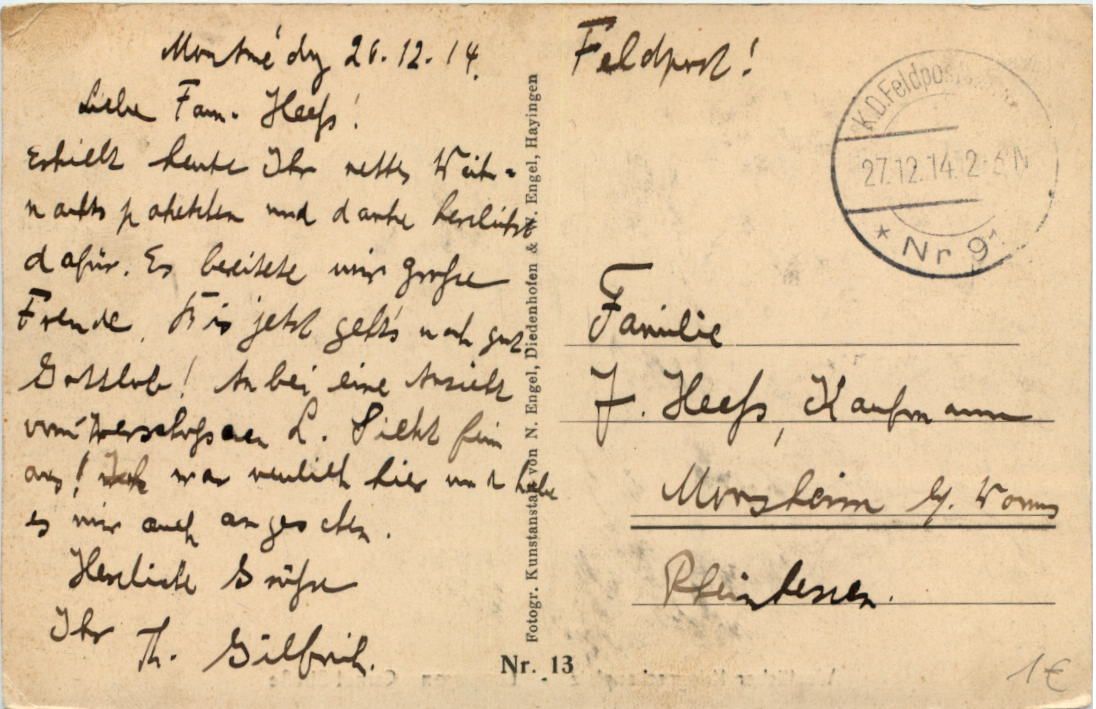 Montmédy 26.12.14.
Liebe Fam. Heeß!
Erhielt heute Ihr nettes Weih-
nachtspaketchen und danke herzlichst
dafür. Es bereitete mir große
Freude. Bis jetzt geht's noch gut
Gottlob! Anbei eine Ansicht
vom zerschossenen L. Sieht fein
aus! Ich war neulich hier und habe
es mir auch angesehen.
Herzliche Grüße
Ihr Th. Gilfrich.
Fotogr. Kunstanstalt von N. Engel, Diedenhofen & W. Engel, Hayingen
Nr. 13
Feldpost!
K.D.Feldpost
27.12.14.2-3N
* Nr 9
Familie
J. Heeß, Kaufmann
Monsheim b/. Worms
Rheinhessen.
1€